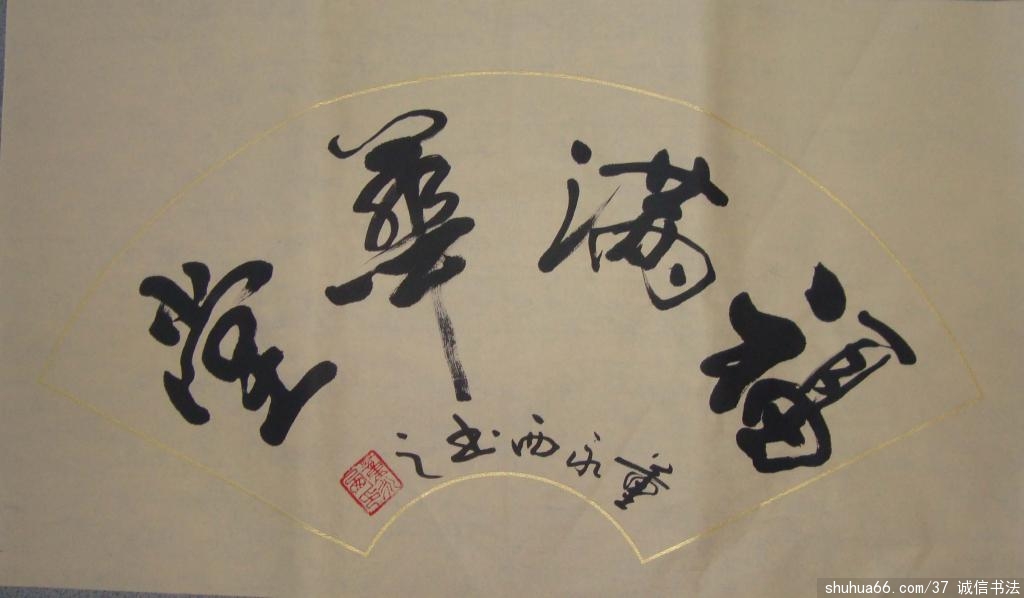 福满華堂
董永西书之
shuhua66.com/37 诚信书法